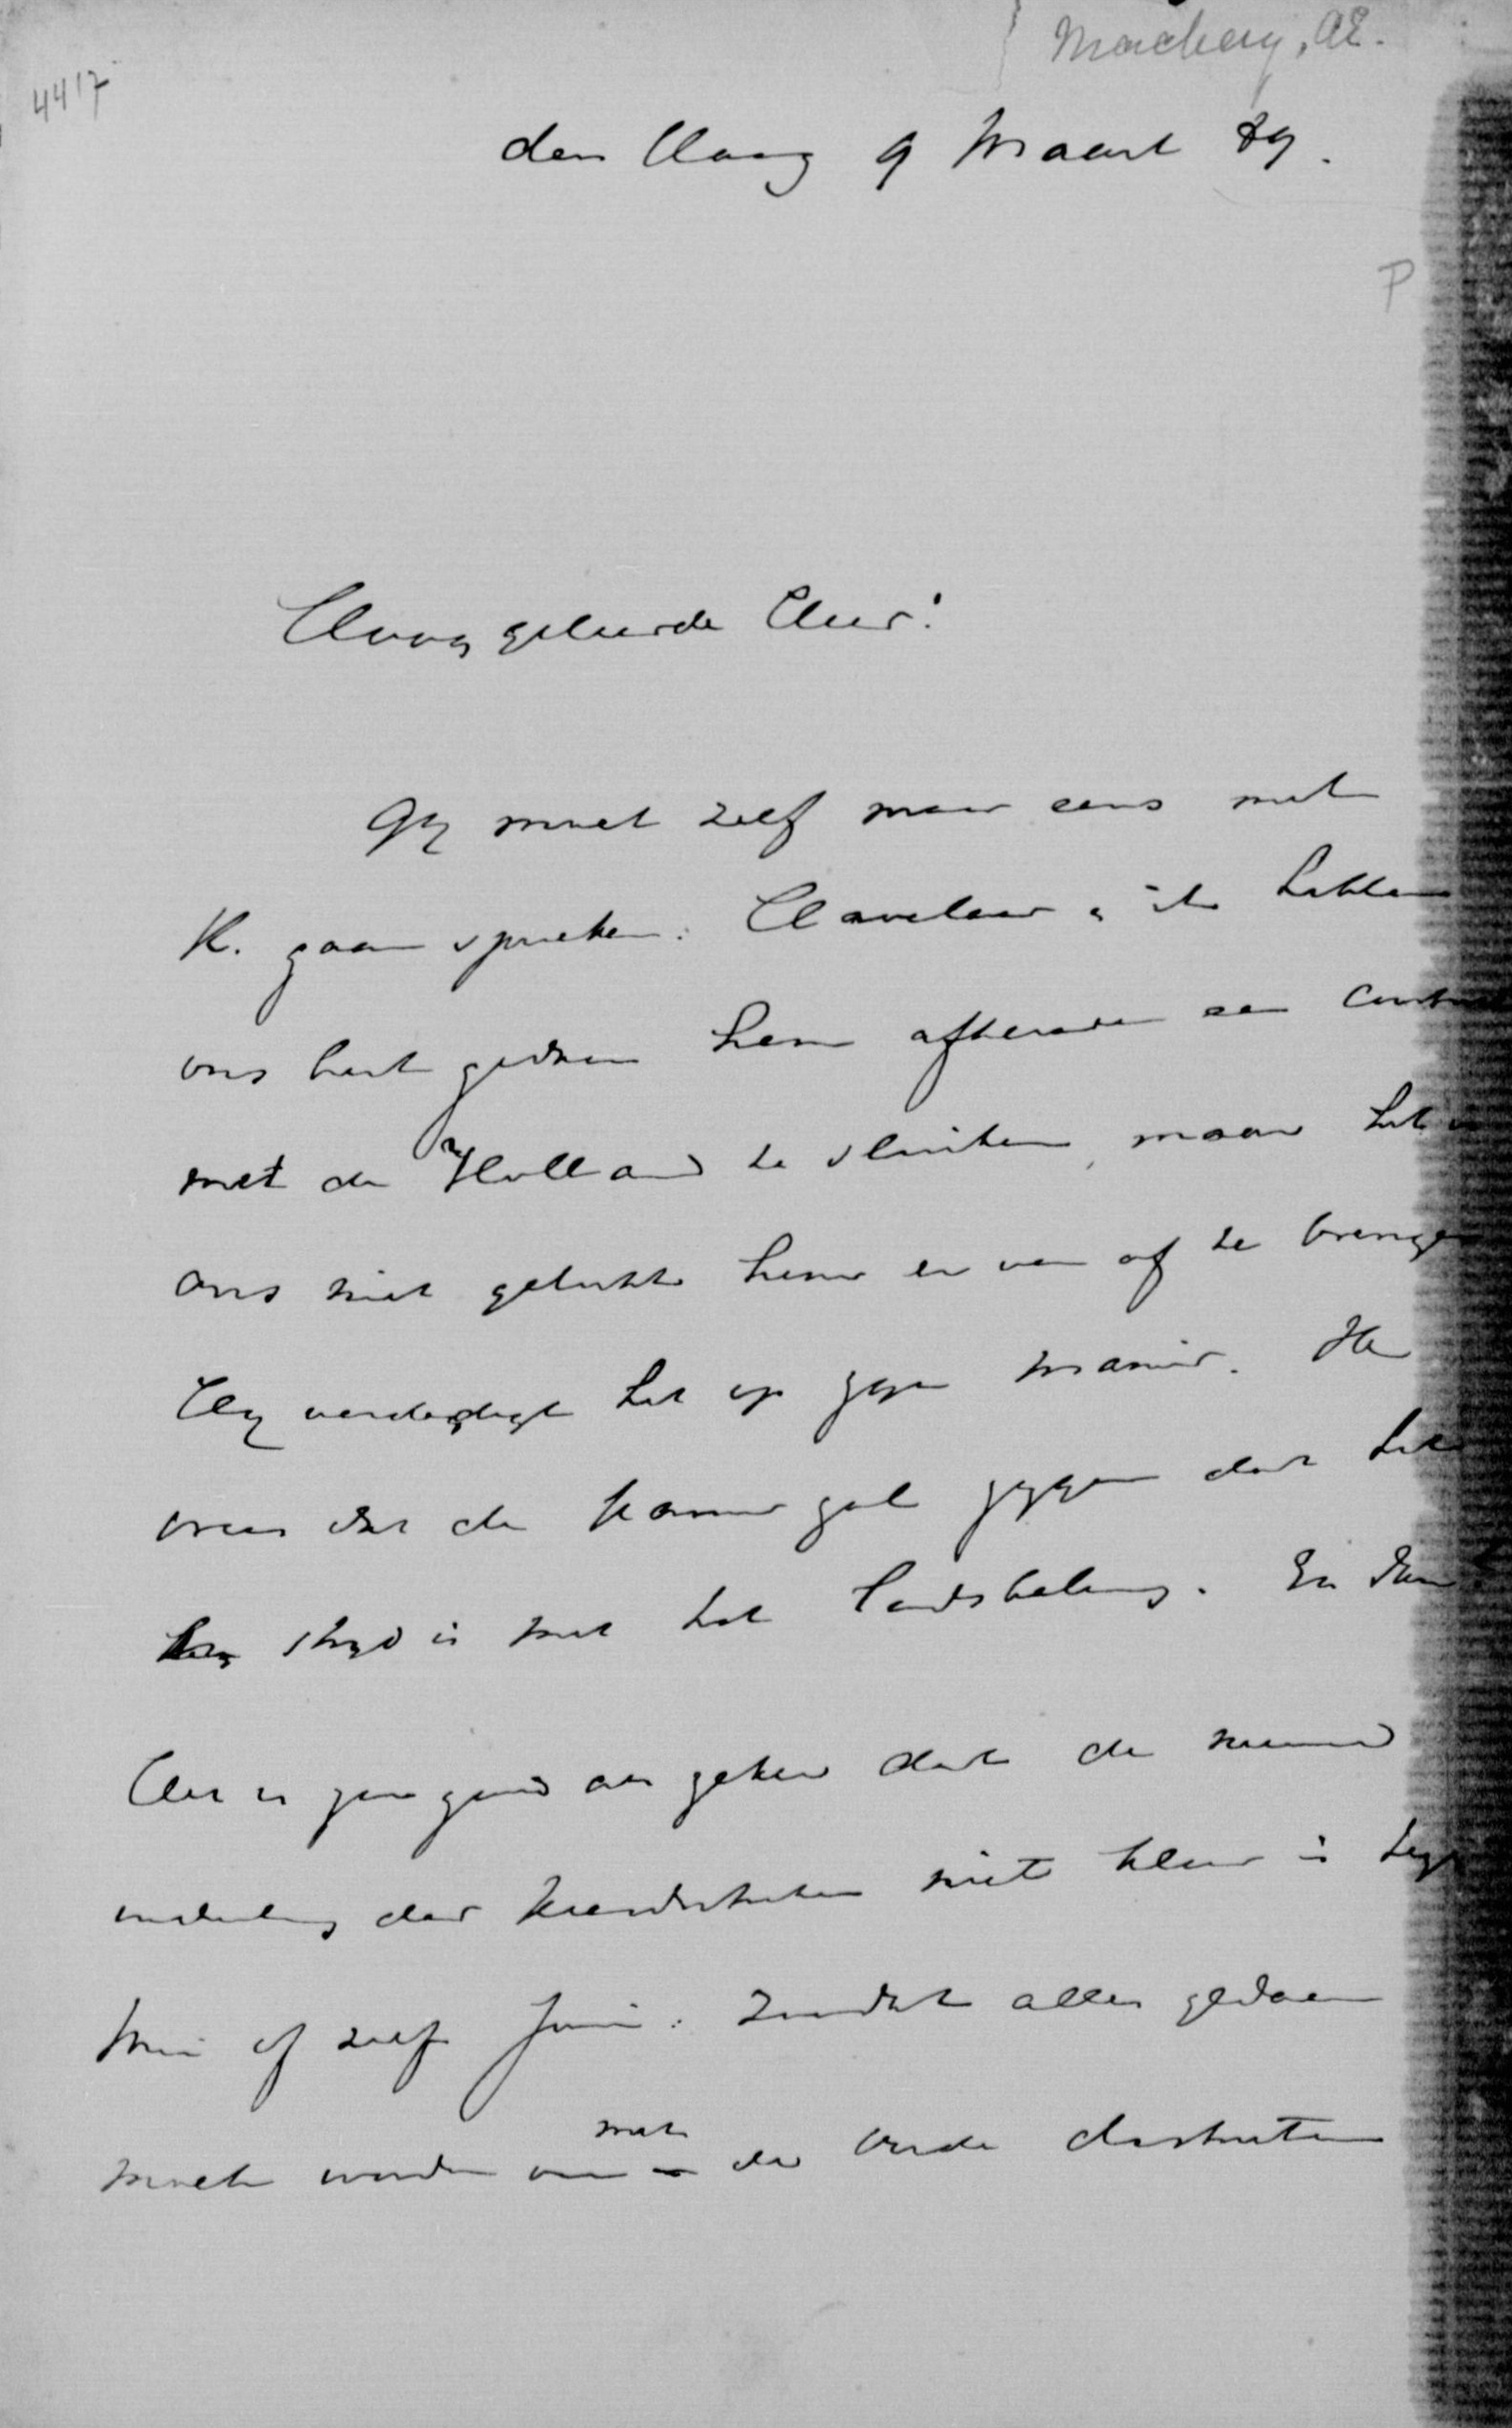 Mackay, AE.
4417
den Haag 9 Maart 89.
P
Hooggeleerde Heer!
Gij moet zelf maar eens met
K. gaan spreken. Havelaar & ik hebben
ons best gedaan hem afteraden een
met de Holland te sluiten, maar het
ons niet gelukt hem er van af te brengen
Hij verdedigt het op zijn manier. Ik
vrees dat de Kamer zal zeggen dat het
strijd is met het Landsbelang. En dan
Het is zoo goed als zeker dat de nieuwe
indeeling der kiesdistricten niet klaar is
Mei of zelfs Juni. Zoodat alles gedaan
moet worden met de oude districten